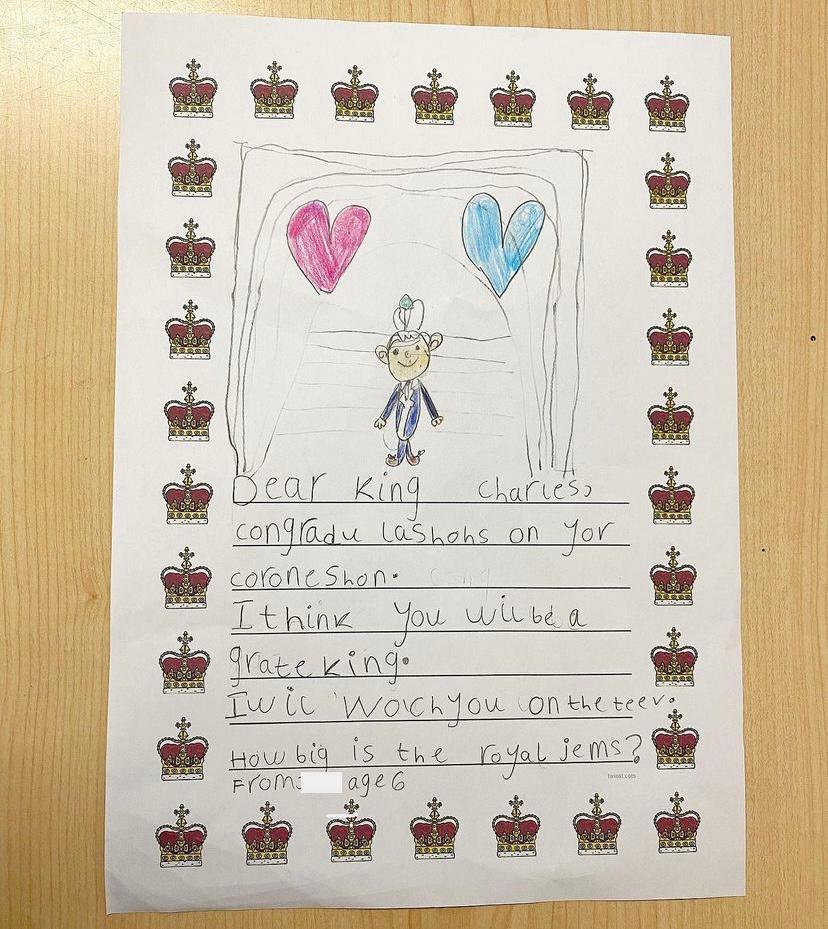 Dear King Charles,
congradu lashohs on yor
coroneshon.
I think you wil be a
grate king.
I wil woch you on the teev.
How big is the royal jems?
twinkl.com
From: age 6